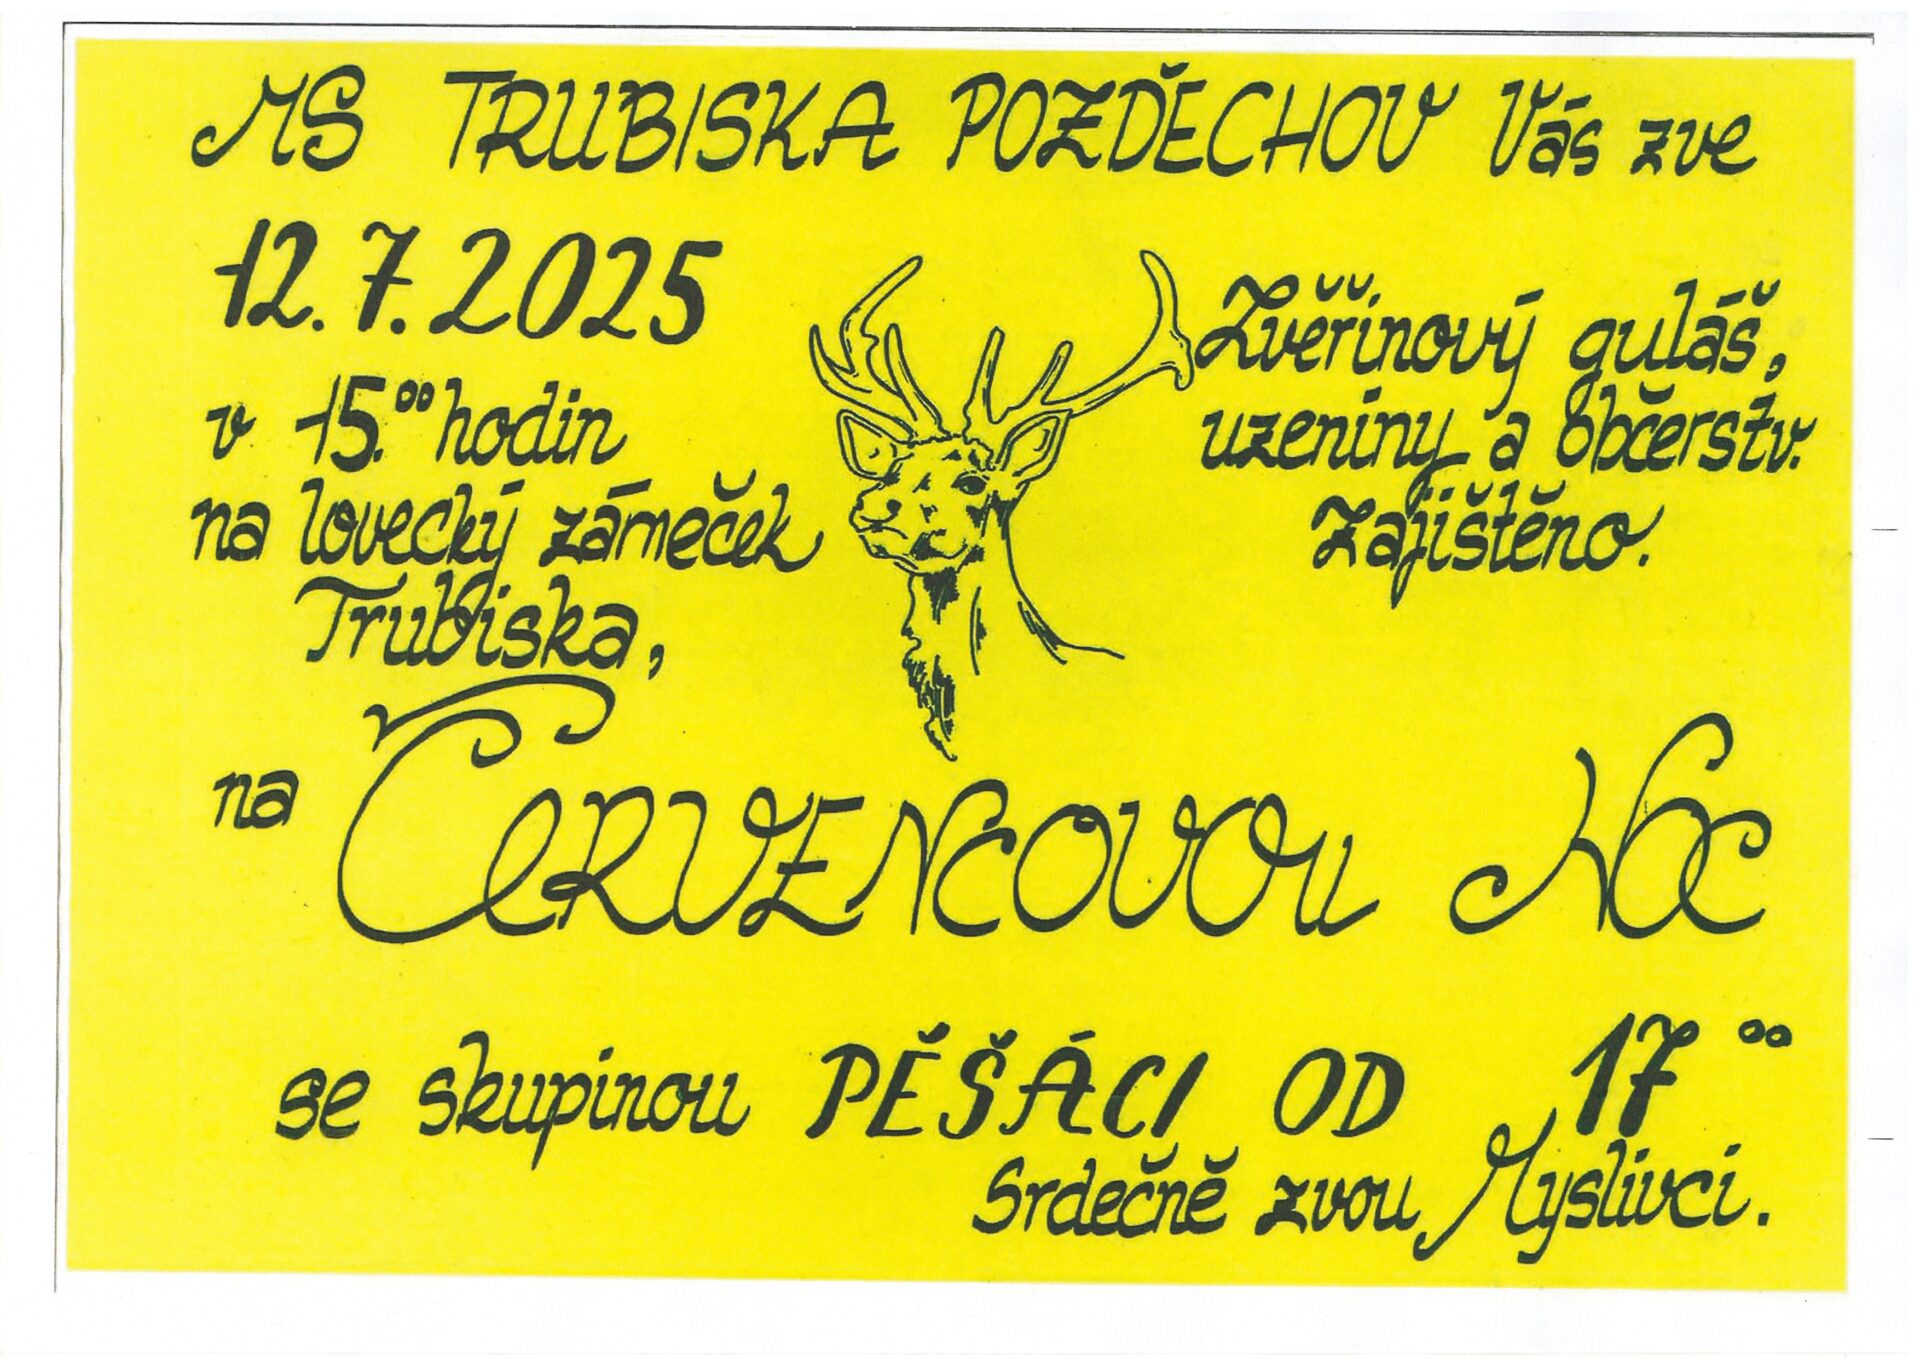 MS TRUBISKA POZDĚCHOV Vás zve
12.7.2025
v 15.00 hodin
na lovecký zámeček
Trubiska,
Zvěřinový guláš,
uzeniny a občerstv.
zajištěno.
na ČERVENCOVOU NOC
se skupinou PĚŠÁCI OD 17 00
Srdečně zvou Myslivci.